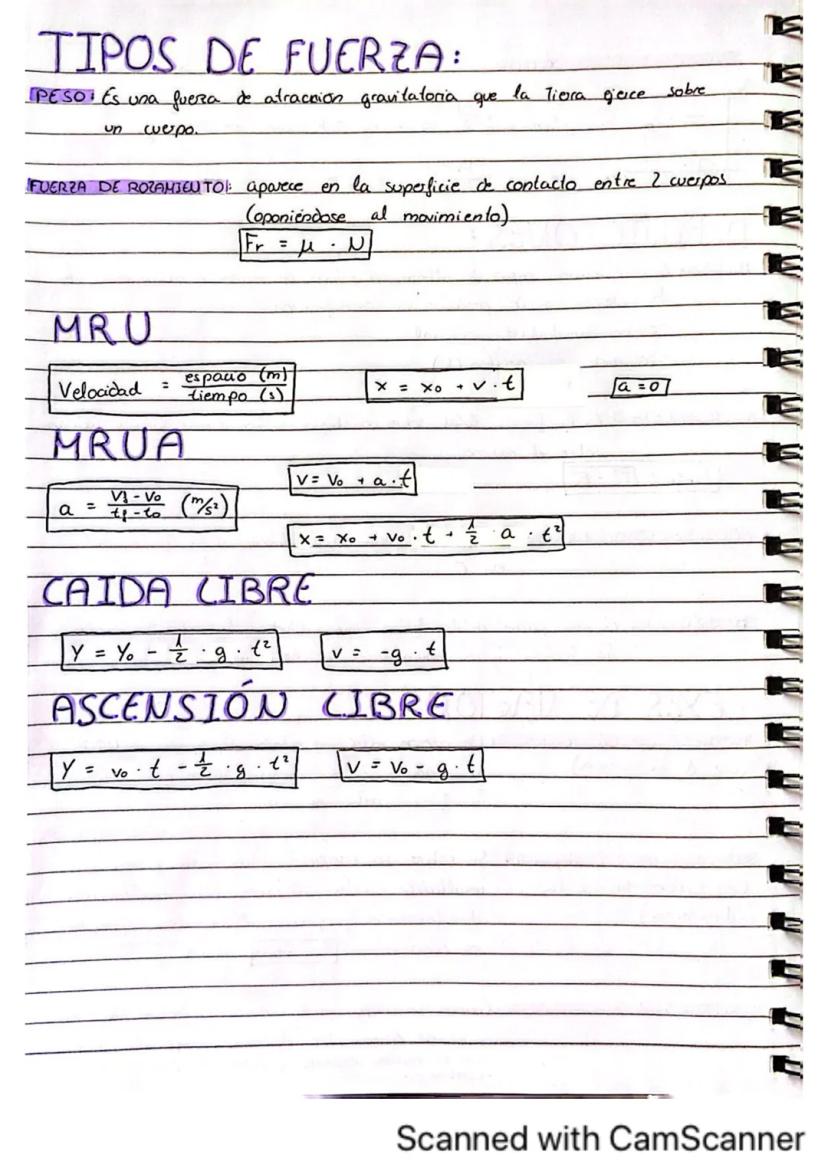 TIPOS DE FUERZA:
PESO: Es una fuerza de atracción gravitatoria que la Tierra ejerce sobre
un cuerpo.
FUERZA DE ROZAMIENTO: aparece en la superficie de contacto entre 2 cuerpos
(oponiéndose al movimiento)
Fr = μ · N
MRU
Velocidad = espacio (m) / tiempo (s)    x = x₀ + v · t    a = 0
MRUA
a = Vf - V₀ / tf - t₀ (m/s²)    V = V₀ + a · t
x = x₀ + v₀ · t + 1/2 a · t²
CAIDA LIBRE
Y = Y₀ - 1/2 · g · t²    v = -g · t
ASCENSIÓN LIBRE
Y = v₀ · t - 1/2 · g · t²    V = V₀ - g · t
Scanned with CamScanner